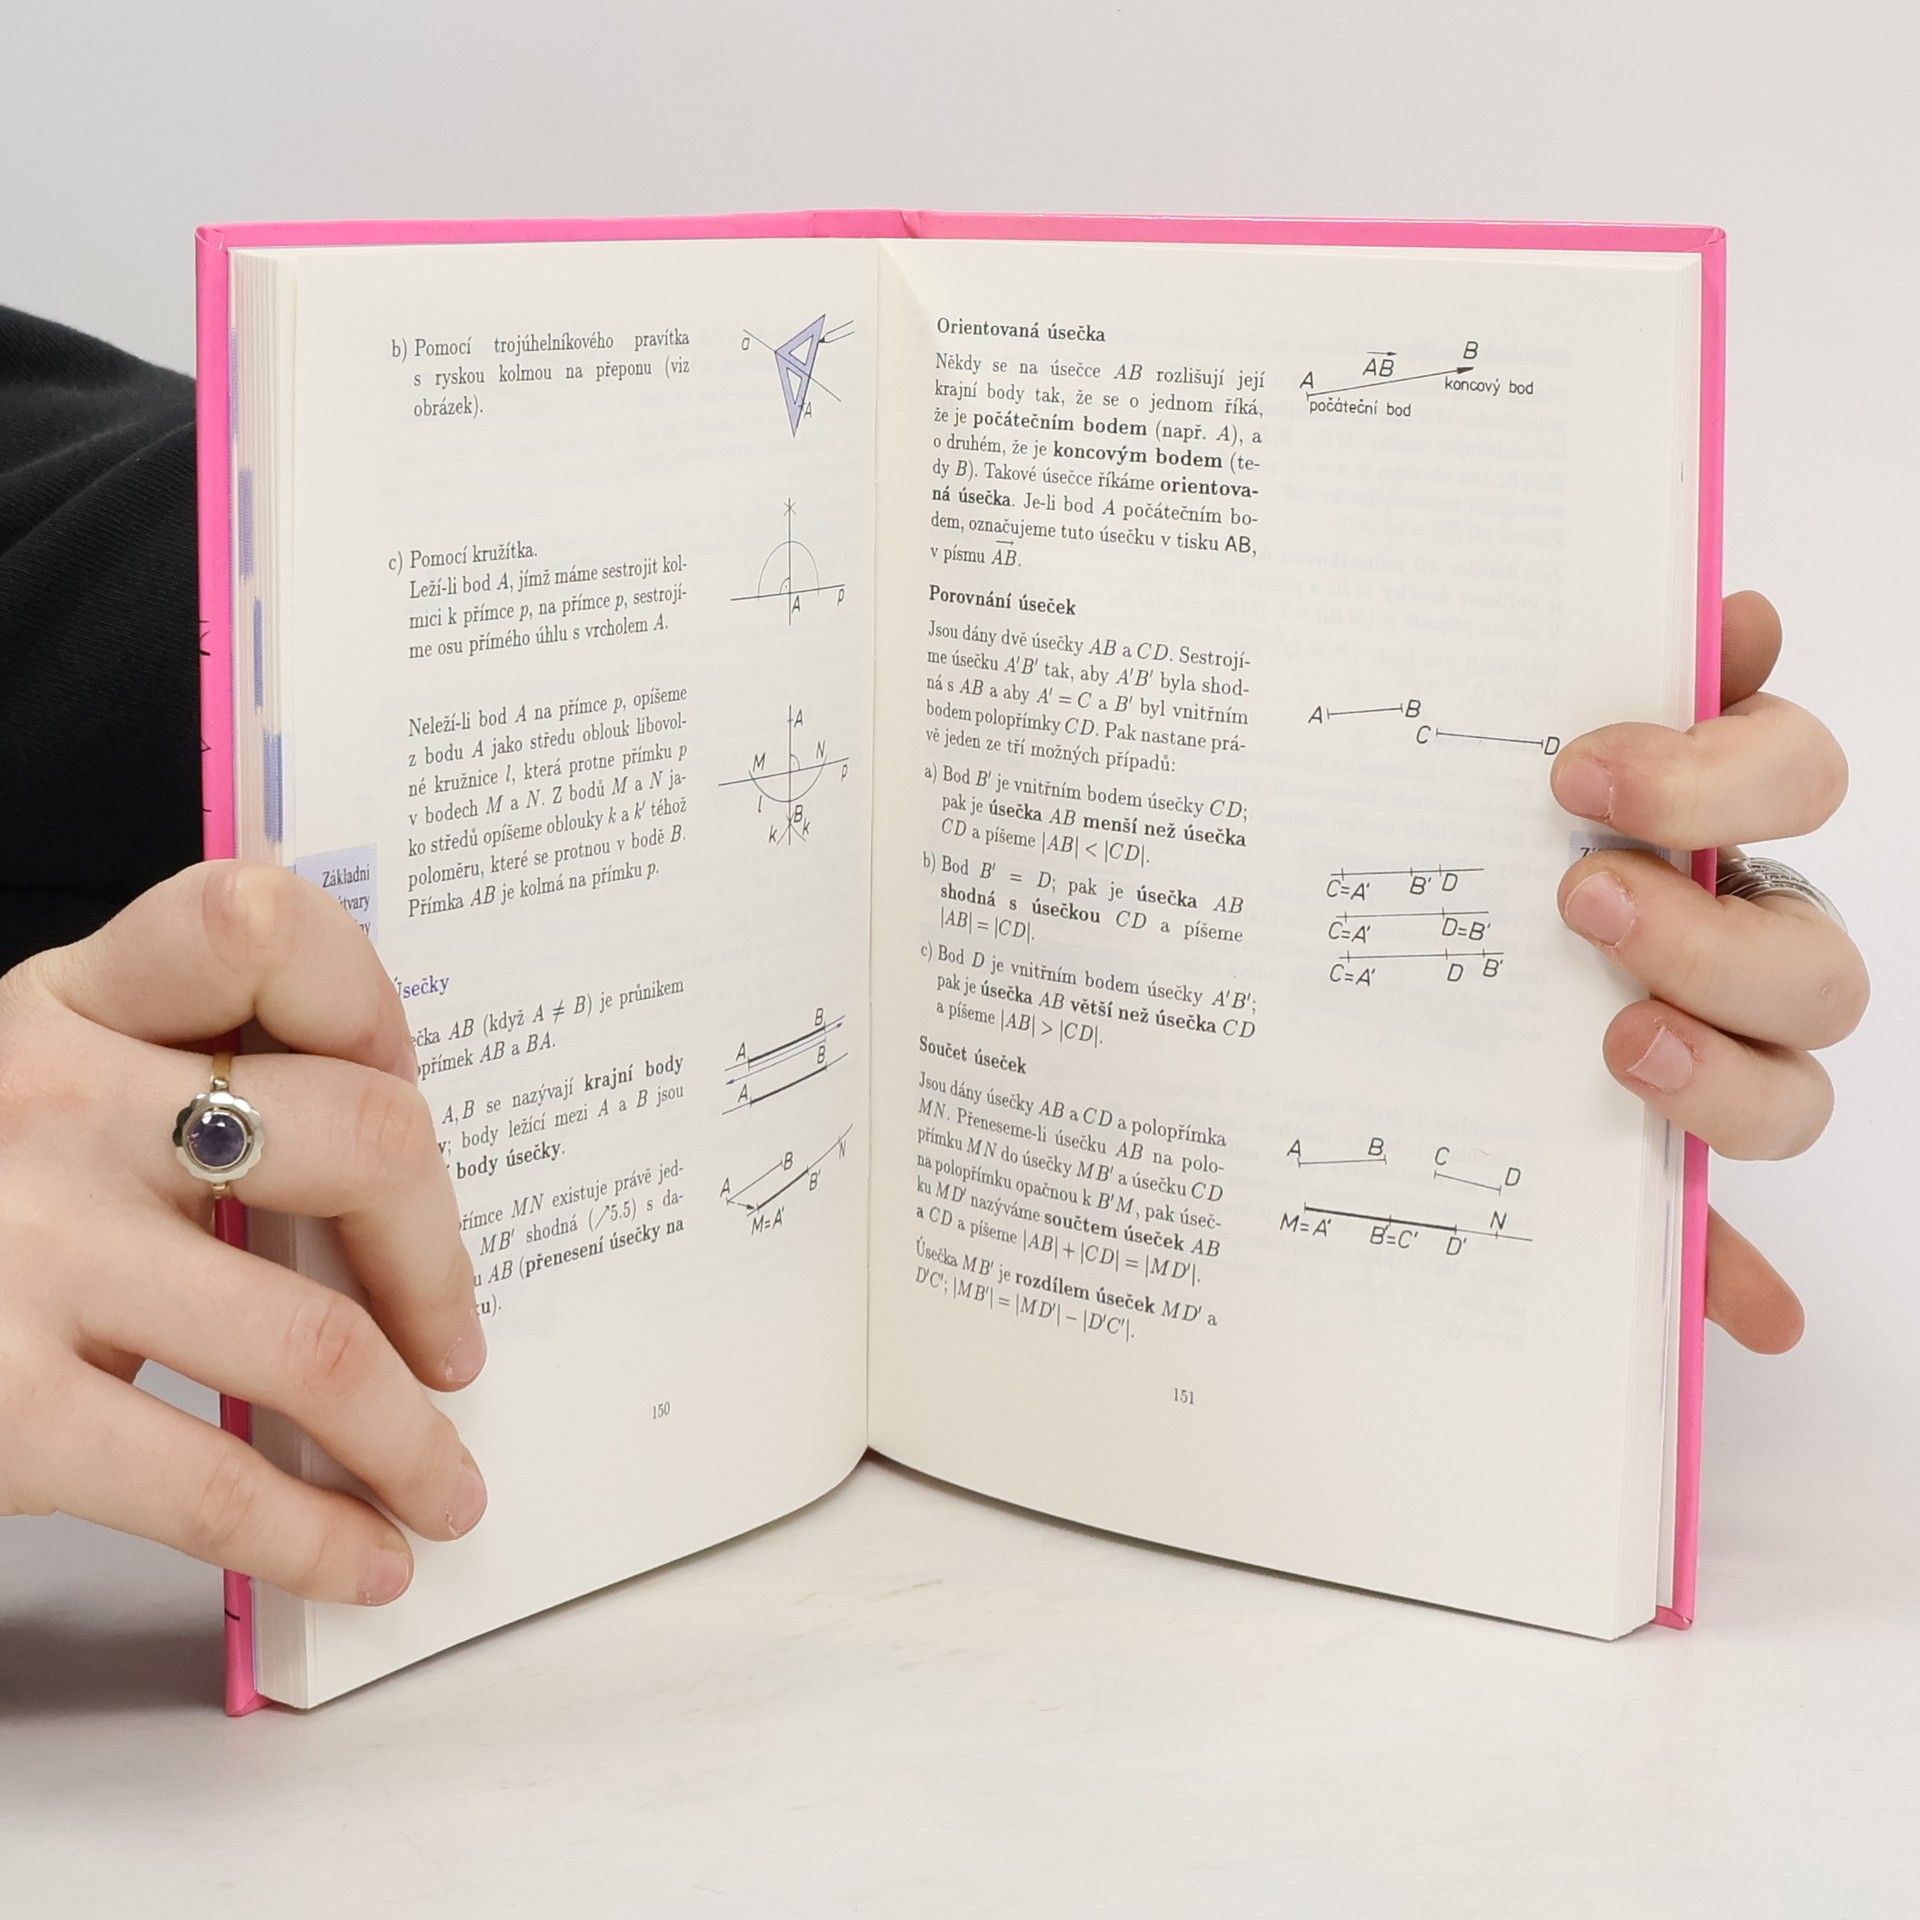 b) Pomocí trojúhelníkového pravítka
s ryskou kolmou na přeponu (viz
obrázek).
o
A
c) Pomocí kružítka.
Leží-li bod A, jímž máme sestrojit kol-
mici k přímce p, na přímce p, sestrojí-
me osu přímého úhlu s vrcholem A.
A p
Neleží-li bod A na přímce p, opíšeme
z bodu A jako středu oblouk libovol-
né kružnice l, která protne přímku p
v bodech M a N. Z bodů M a N ja-
ko středů opíšeme oblouky k a k' téhož
poloměru, které se protnou v bodě B.
Přímka AB je kolmá na přímku p.
A
M N
p
l
B
k k
Základní
Úsečky
AB (když A ≠ B) je průnikem
AB a BA.
A, B se nazývají krajní body
body ležící mezi A a B jsou
body úsečky.
MN existuje právě jed-
MB' shodná (↗5.5) s da-
AB (přenesení úsečky na
B
A
B
A
N
B
A B'
M=A'
150
Orientovaná úsečka
Někdy se na úsečce AB rozlišují její
krajní body tak, že se o jednom říká,
že je počátečním bodem (např. A), a
o druhém, že je koncovým bodem (te-
dy B). Takové úsečce říkáme orientova-
ná úsečka. Je-li bod A počátečním bo-
dem, označujeme tuto úsečku v tisku AB,
v písmu A⃗B⃗.
A A⃗B⃗ B
koncový bod
počáteční bod
Porovnání úseček
Jsou dány dvě úsečky AB a CD. Sestrojí-
me úsečku A'B' tak, aby A'B' byla shod-
ná s AB a aby A' = C a B' byl vnitřním
bodem polopřímky CD. Pak nastane prá-
vě jeden ze tří možných případů:
A B
C D
a) Bod B' je vnitřním bodem úsečky CD;
pak je úsečka AB menší než úsečka
CD a píšeme |AB| < |CD|.
b) Bod B' = D; pak je úsečka AB
shodná s úsečkou CD a píšeme
|AB| = |CD|.
c) Bod D je vnitřním bodem úsečky A'B';
pak je úsečka AB větší než úsečka CD
a píšeme |AB| > |CD|.
C=A' B' D
C=A' D=B'
C=A' D B'
Součet úseček
Jsou dány úsečky AB a CD a polopřímka
MN. Přeneseme-li úsečku AB na polo-
přímku MN do úsečky MB' a úsečku CD
na polopřímku opačnou k B'M, pak úseč-
ku MD' nazýváme součtem úseček AB
a CD a píšeme |AB| + |CD| = |MD'|.
Úsečka MB' je rozdílem úseček MD' a
D'C'; |MB'| = |MD'| − |D'C'|.
A B C D
M=A' B'=C' D' N
151